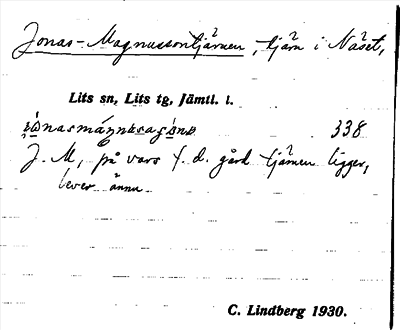 Jonas-Magnussontjärnen, tjärn i Näset,
Lits sn, Lits tg, Jämtl. l.
338
J. M., på vars f. d. gård tjärnen ligger,
lever ännu.
C. Lindberg 1930.